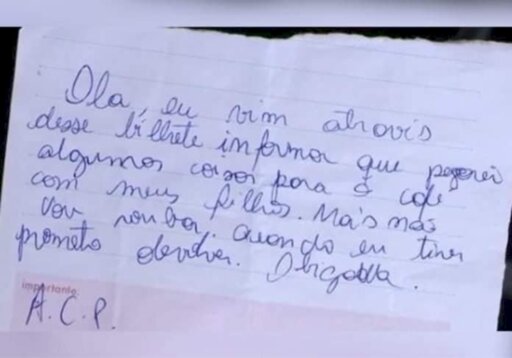 Ola, eu vim atravis
desse bilhete informar que peguei
algumas coisas para o cafe
com meus filhos. Mais não
vou roubar. Quando eu tiver
prometo devolver. Obrigada.
importante
A.C.P.